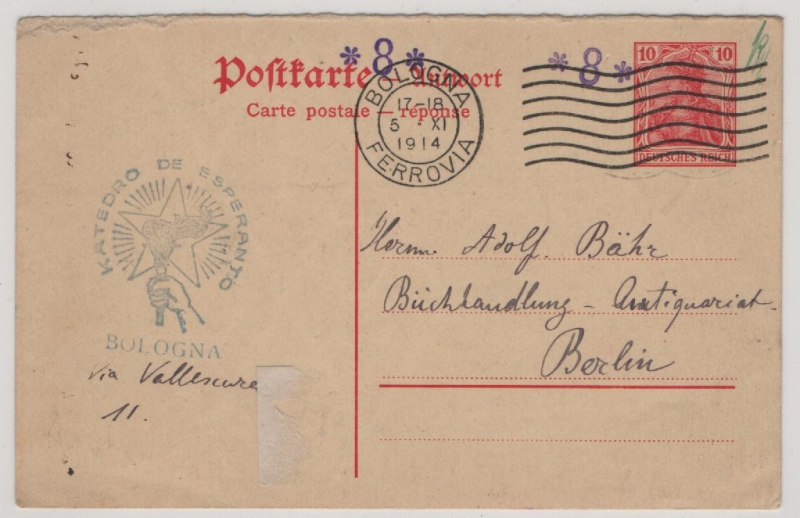 * 8 * * 8 *
Postkarte – Antwort
Carte postale — réponse
10 10
DEUTSCHES REICH
BOLOGNA
17-18
5 · XI
1914
FERROVIA
KATEDRO DE ESPERANTO
BOLOGNA
Via Vallescura
11.
Herrn. Adolf. Bähr
Büchhandlung – Antiquariat.
Berlin